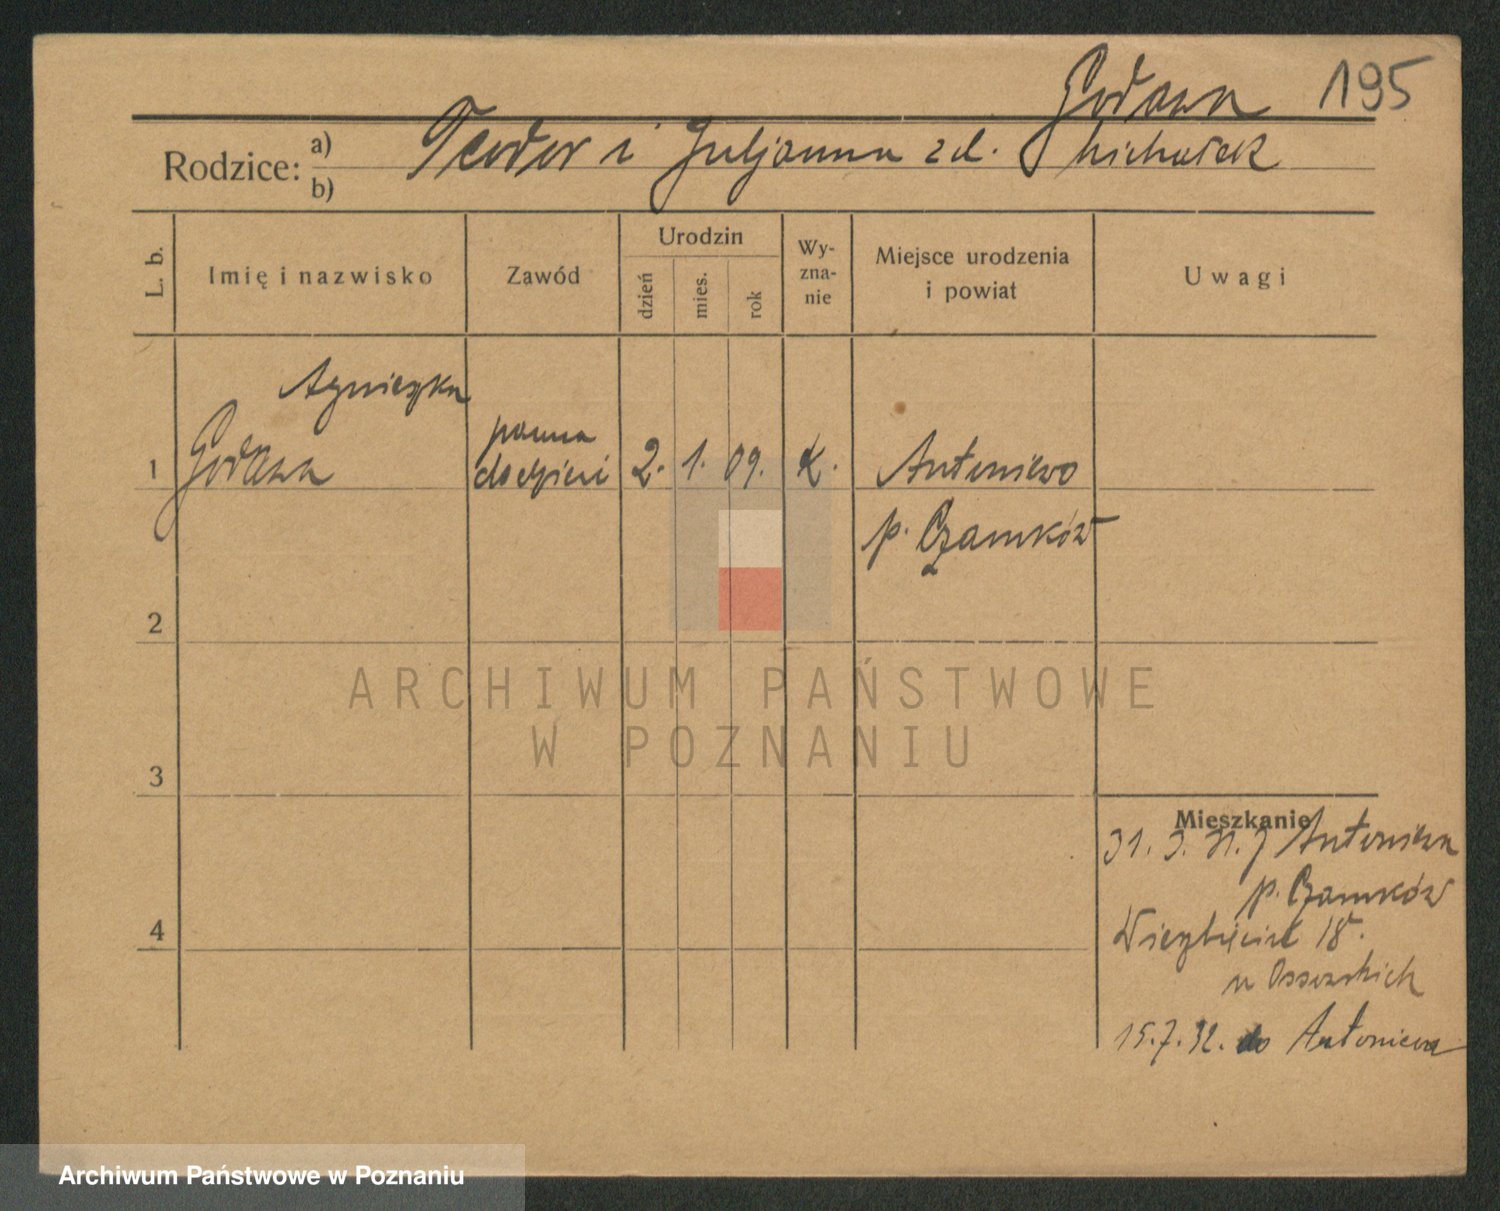 Godawa 195
Rodzice: a) Teodor i Juljanna zd. Michałek
b)
L. b.
Imię i nazwisko
Zawód
Urodzin
dzień
mies.
rok
Wy-
zna-
nie
Miejsce urodzenia
i powiat
Uwagi
Agnieszka
1 Godawa
panna
do dzieci
2. 1. 09. k. Antoniewo
p. Czarnków
2
3
4
Mieszkanie
31. 3. 31. z Antoniewa
p. Czarnków
Wierzbięcice 18.
u
15.7.32. do Antoniewa
ARCHIWUM PAŃSTWOWE
W POZNANIU
Archiwum Państwowe w Poznaniu